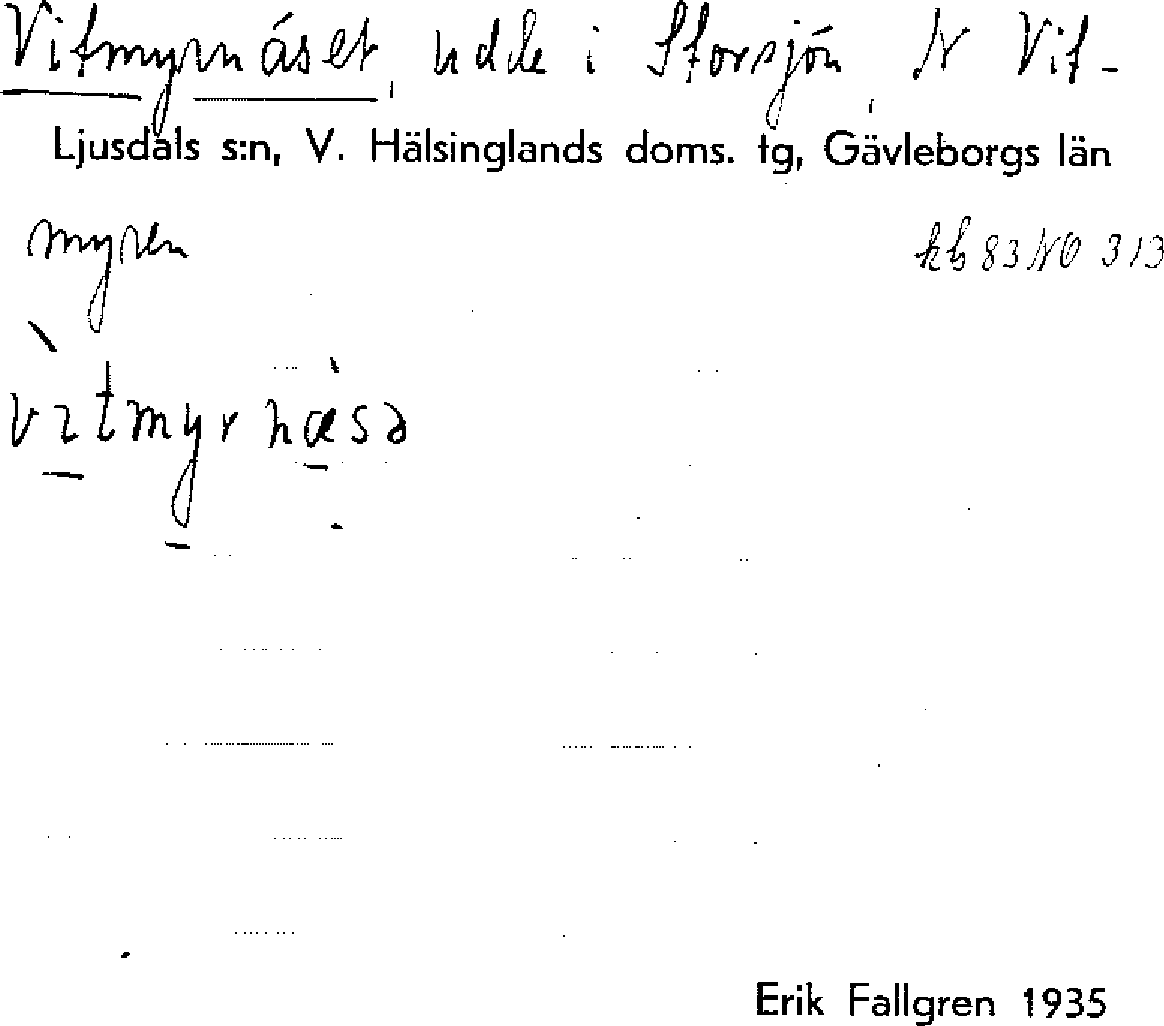 Vitmyrnäset, udde i Storsjön, N Vit-
Ljusdals s:n, V. Hälsinglands doms. tg, Gävleborgs län
myren
kb 83 NO 313
vitmyrnæsə
Erik Fallgren 1935